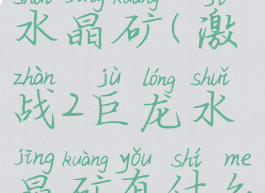 shuǐ jīng kuàng jī
水晶矿(激
zhàn jù lóng shuǐ
战2巨龙水
jīng kuàng yǒu shí me
晶矿有什么